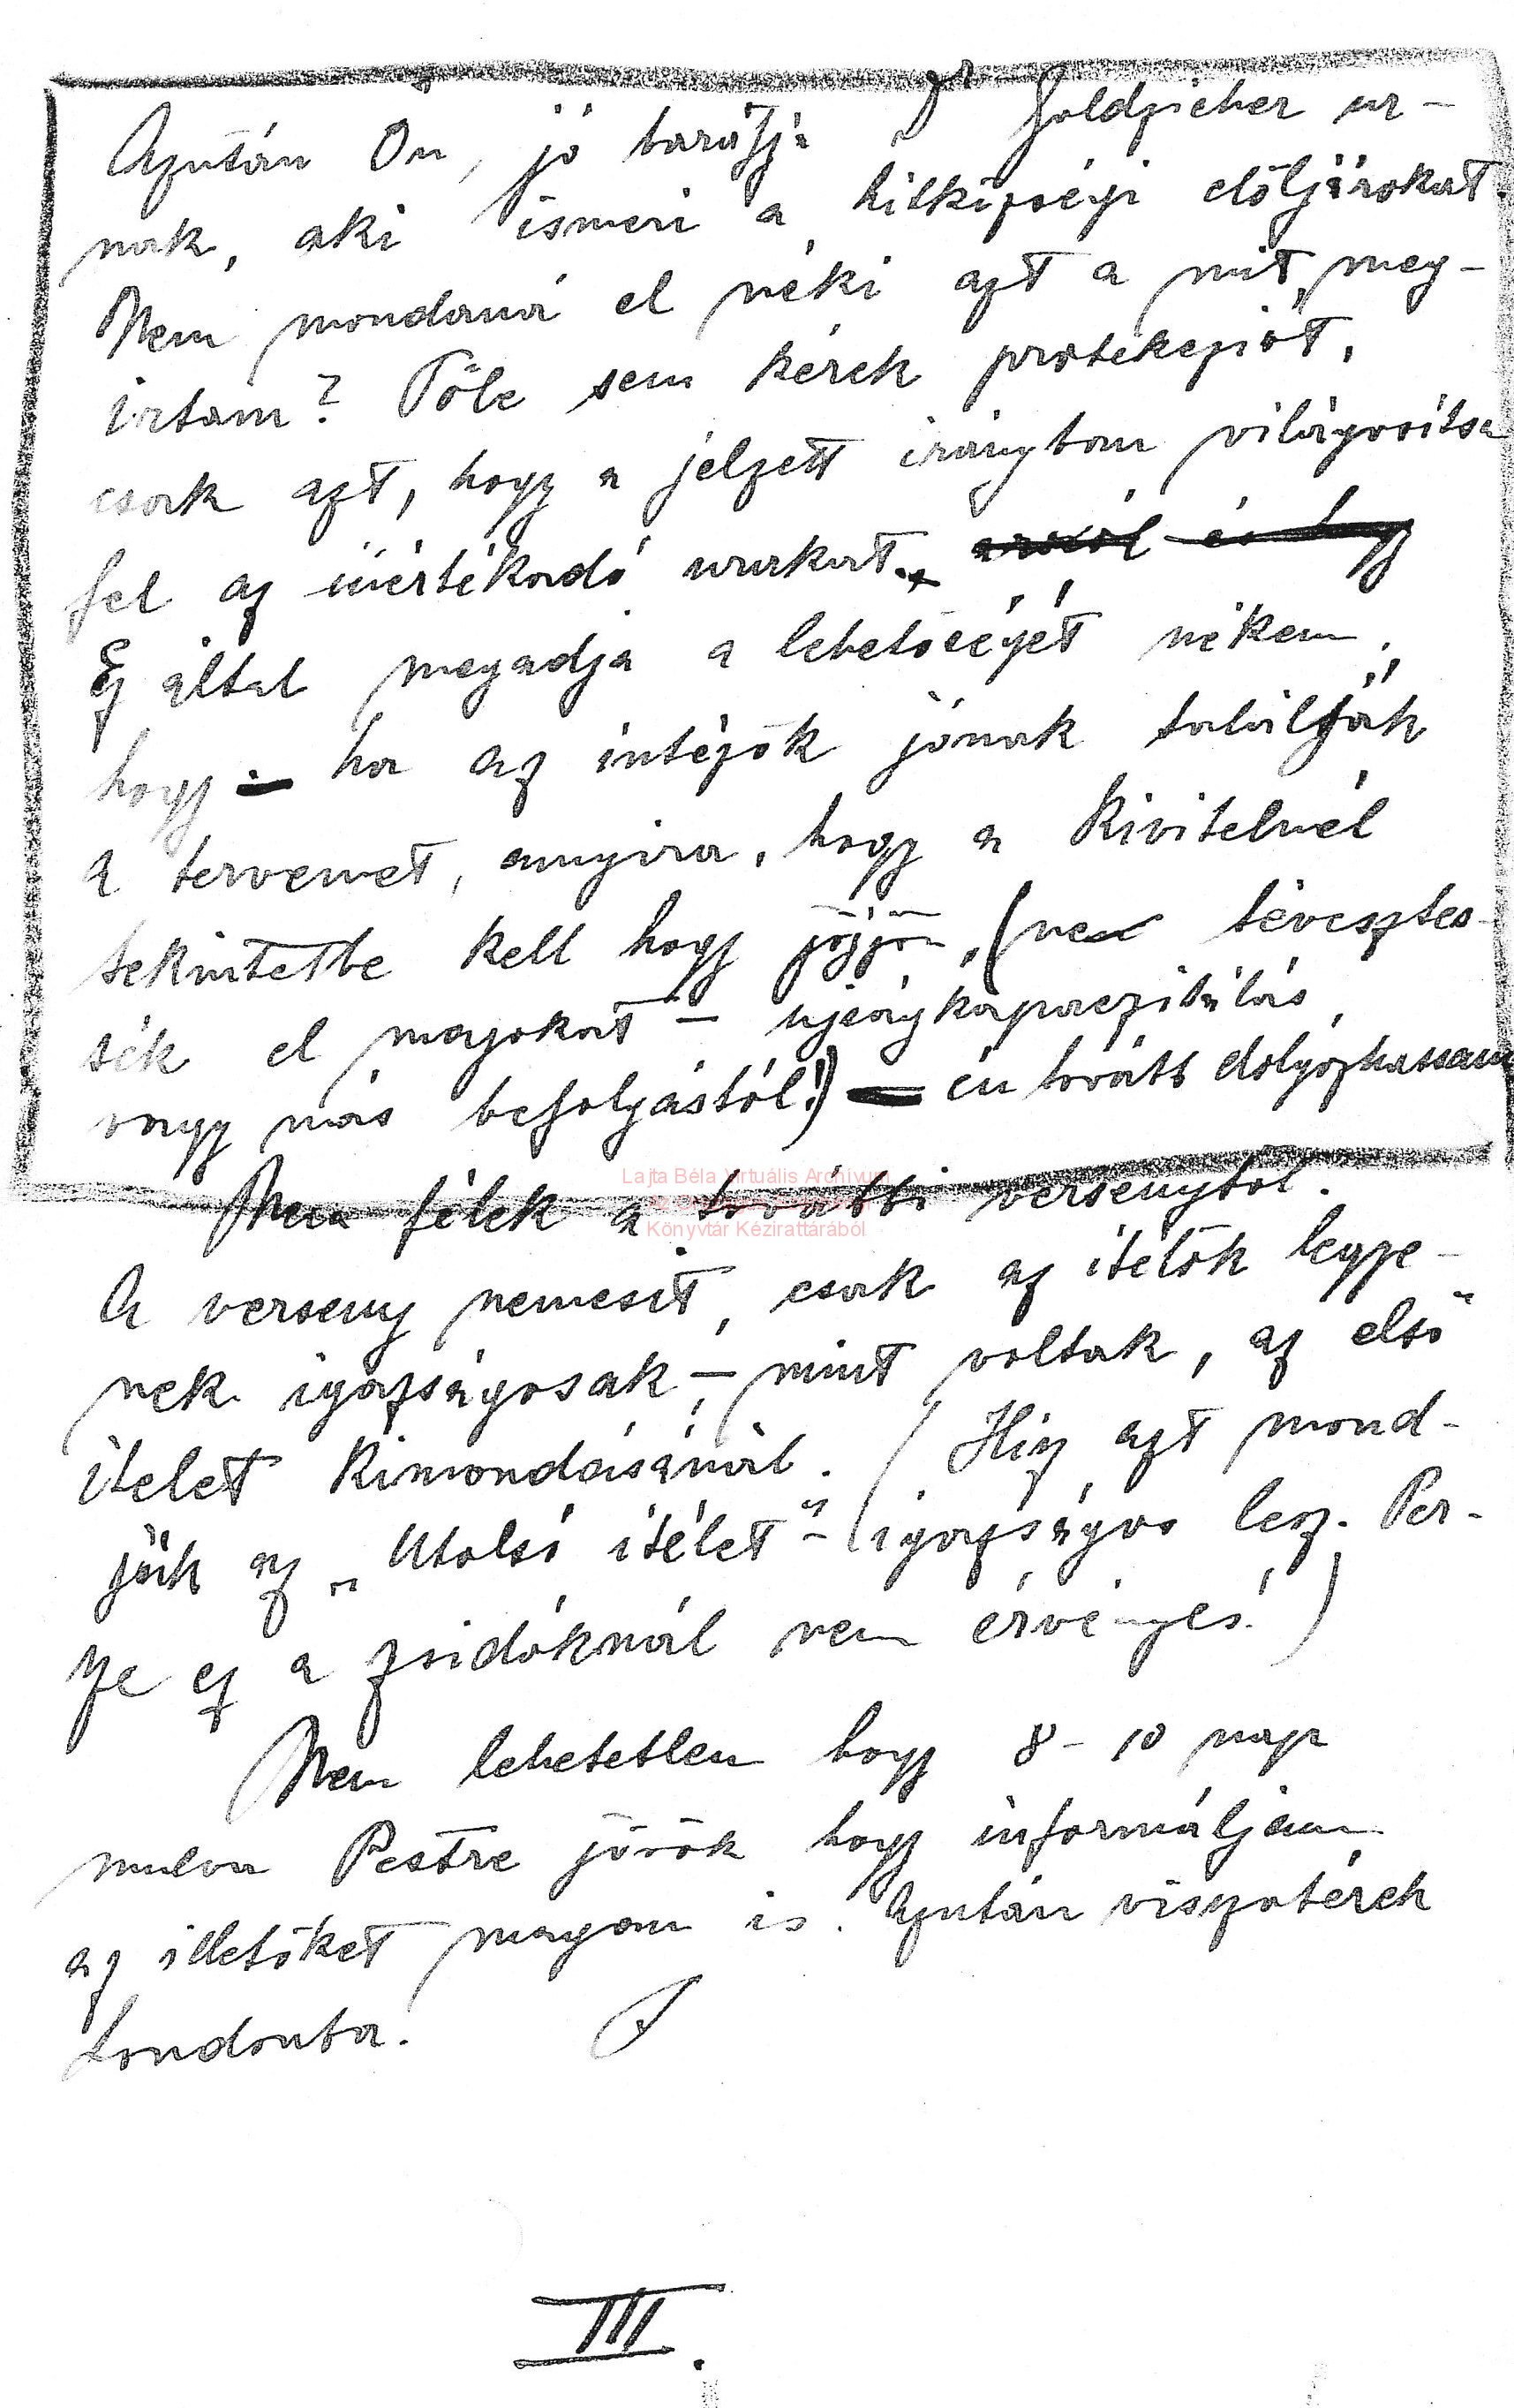 Azután Ön, jó barátja Goldzieher ur-
nak, aki ismeri a hitközségi elöljárokat.
Nem mondaná el néki azt a mit meg-
irtam? Tőle sem kérek protekcziót,
csak azt, hogy a jelzett irányban világosítsa
fel az mértékadó urakat.
Ez által megadja a lehetőségét nékem,
hogy – ha az intézők jónak találják
a tervemet, annyira, hogy a kivitelnél
tekintetbe kell hogy jöjjön, (ne tévesztes-
sék el magokat – ujságkapaczitálás,
vagy más befolyástól!) – én tovább dolgozhassam
Nem félek a további versenytől.
A verseny nemesít, csak az itélők legye-
nek igazságosak – mint voltak, az első
itélet kimondásánál. (Hisz azt mond-
ják az „Utolsó itélet" – igazságos lesz. Per-
sze ez a zsidóknál nem érvényes!)
Nem lehetetlen hogy 8 – 10 nap
mulva Pestre jövök hogy informáljam
az illetőket magam is. Azután viszatérek
Londonba.
III.
Lajta Béla Virtuális Archívum
Könyvtár Kézirattárából